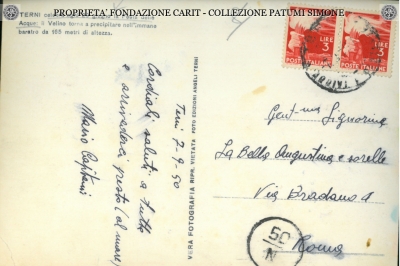 PROPRIETA' FONDAZIONE CARIT - COLLEZIONE PATUMI SIMONE
TERNI
Acque: Il Velino torna a precipitare nell'immane
baratro da 165 metri di altezza.
POSTE ITALIANE
LIRE
3
POSTE ITALIANE
LIRE
3
VERA FOTOGRAFIA RIPR. VIETATA FOTO EDIZIONI ANGELI TERNI
Terni 7-9-50
Cordiali saluti a tutte
e arrivederci presto (al mare)
Mario Capitani
Gent.ma Signorina
La Bella Augustina e sorelle
Via Bradano 1
Roma
50
N